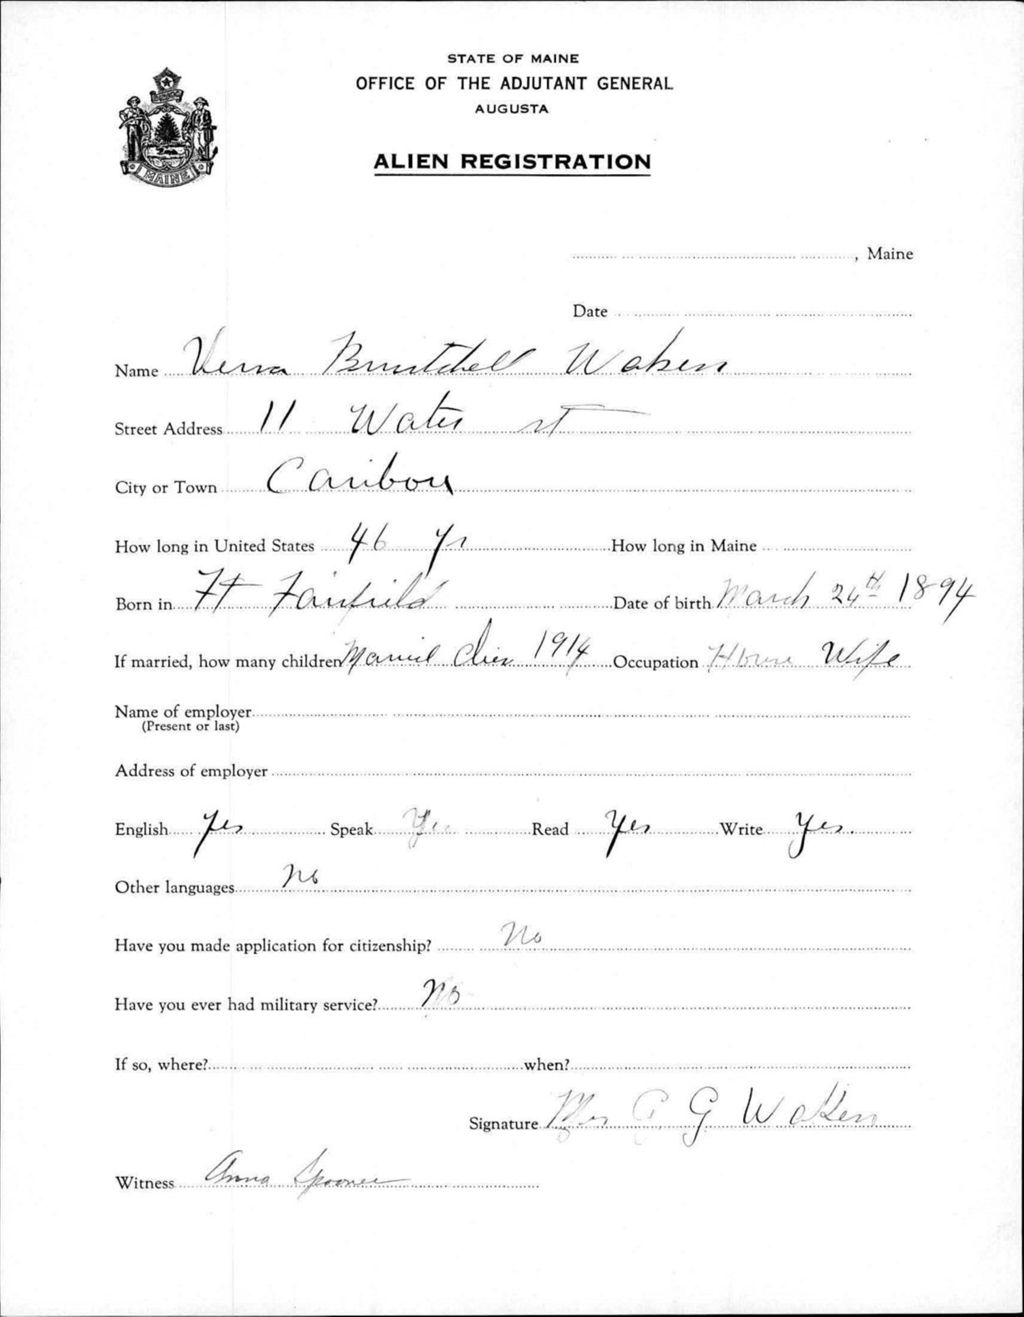 STATE OF MAINE
OFFICE OF THE ADJUTANT GENERAL
AUGUSTA
ALIEN REGISTRATION
MAINE
, Maine
Date
Name Verna Waken
Street Address 11 Water st
City or Town Caribou
How long in United States 46 yr How long in Maine
Born in Ft Fairfield Date of birth March 24th 1894
If married, how many children Married 1914 Occupation House Wife
Name of employer
(Present or last)
Address of employer
English Yes Speak Yes Read Yes Write Yes.
Other languages No
Have you made application for citizenship? No
Have you ever had military service? No
If so, where? when?
Signature Mrs G Waken
Witness Anna Spooner